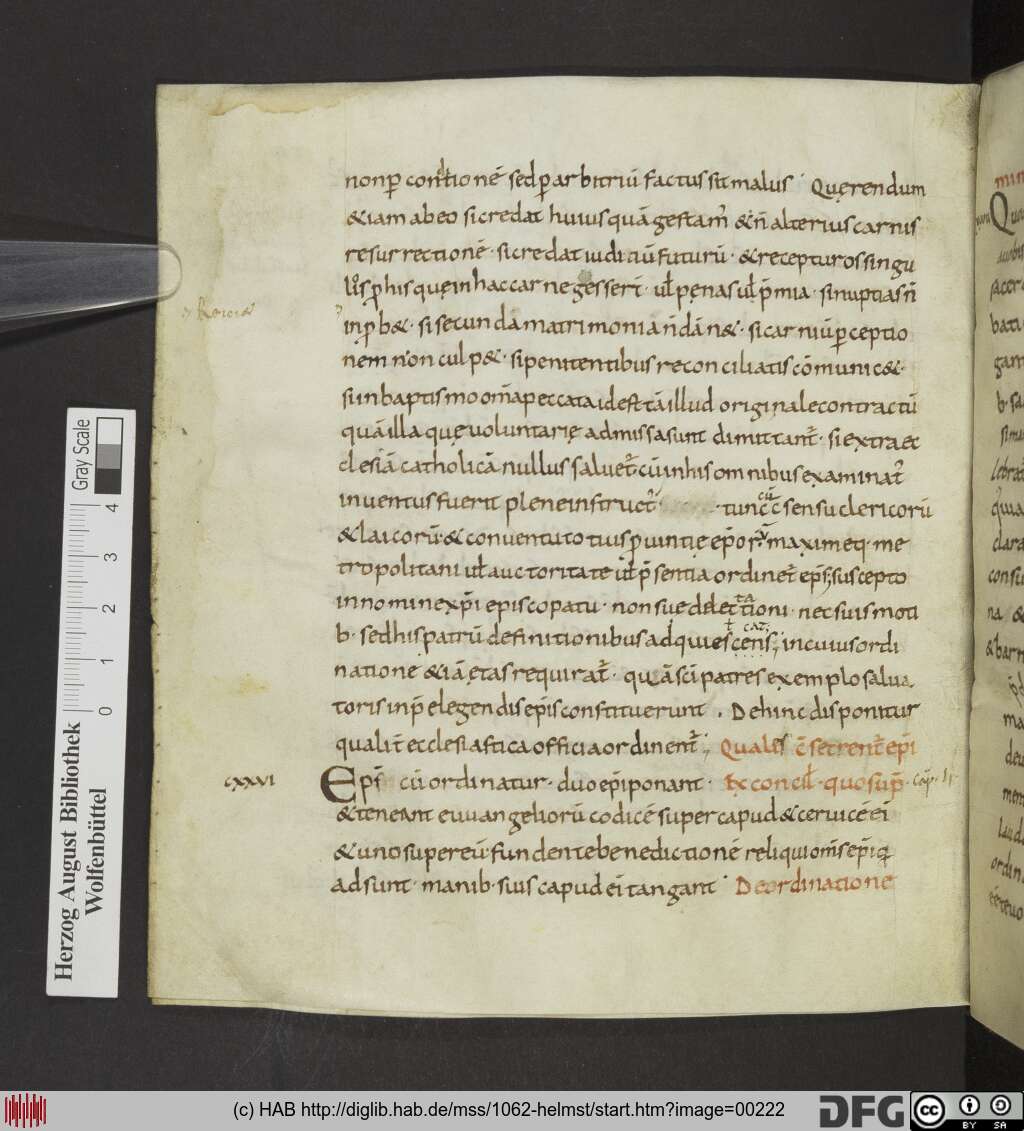 nonp̄ contionē sed p̄ arbitriū factus sit malus · Quęrendum
&iam ab eo si credat huius quā gestam̄ & n̄ alterius carnis
resurrectionē · si credat iudiciū futurū · & recepturos singu
los p̄ his quę in hac carne gesser̄ · ul̄ pęnas ul̄ p̄mia · si nuptias n̄
inp̄b& · si secunda matrimonia n̄ dān& · si carniū p̄ceptio
nem non culp& · si penitentibus reconciliatis cōmunic& ·
si in baptismo om̄a peccata id est tā illud originale contractū
quā illa quę uoluntarię admissa sunt dimittant̄ · si extra ec
clesiā catholicā nullus saluet̄ · cū in his omnibus examinat̄
inuentus fuerit plene instruct̄ · tunc c̄ sensu clericorū
& laicorū · & conuentu totius p̄uintię ep̄or̄ · maximeq · me
tropolitani ul̄ auctoritate ul̄ p̄sentia ordinet̄ ep̄s; suscepto
in nomine xp̄i episcopatu · non sue delectationi · nec suis moti
b · sed his patrū definitionibus adquiescens; in cuius ordi
natione & iā ętas requirat̄ · quā sc̄i patres exemplo salua
toris in p̄elegendis ep̄is constituerunt . Dehinc disponitur
qualit̄ ecclesiastica officia ordinent̄; Qualis c̄secrent̄ ep̄i
cxxxvi Ep̄s cū ordinatur · duo ep̄i ponant · Ex concil̄ · quo sup̄ · cap̄ · ii
& teneant euuangeliorū codicē super capud & ceruicē ei
& uno super eū fundente benedictionē reliqui om̄s ep̄i q̄
adsunt · manib · suis capud ei tangant · De ordinatione
Gray Scale
0 1 2 3 4
Herzog August Bibliothek
Wolfenbüttel
(c) HAB http://diglib.hab.de/mss/1062-helmst/start.htm?image=00222
DFG
cc BY SA